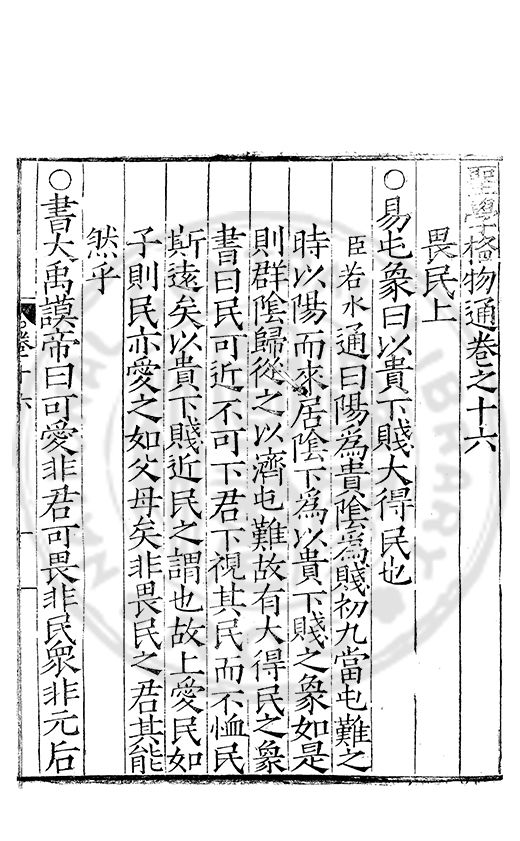 聖學格物通卷之十六
畏民上
○易屯象曰以貴下賤大得民也
臣若水通曰陽爲貴陰爲賤初九當屯難之
時以陽而來居陰下爲以貴下賤之象如是
則群陰歸從之以濟屯難故有大得民之象
書曰民可近不可下君下視其民而不恤民
斯遠矣以貴下賤近民之謂也故上愛民如
子則民亦愛之如父母矣非畏民之君其能
然乎
○書大禹謨帝曰可愛非君可畏非民衆非元后
卷十六